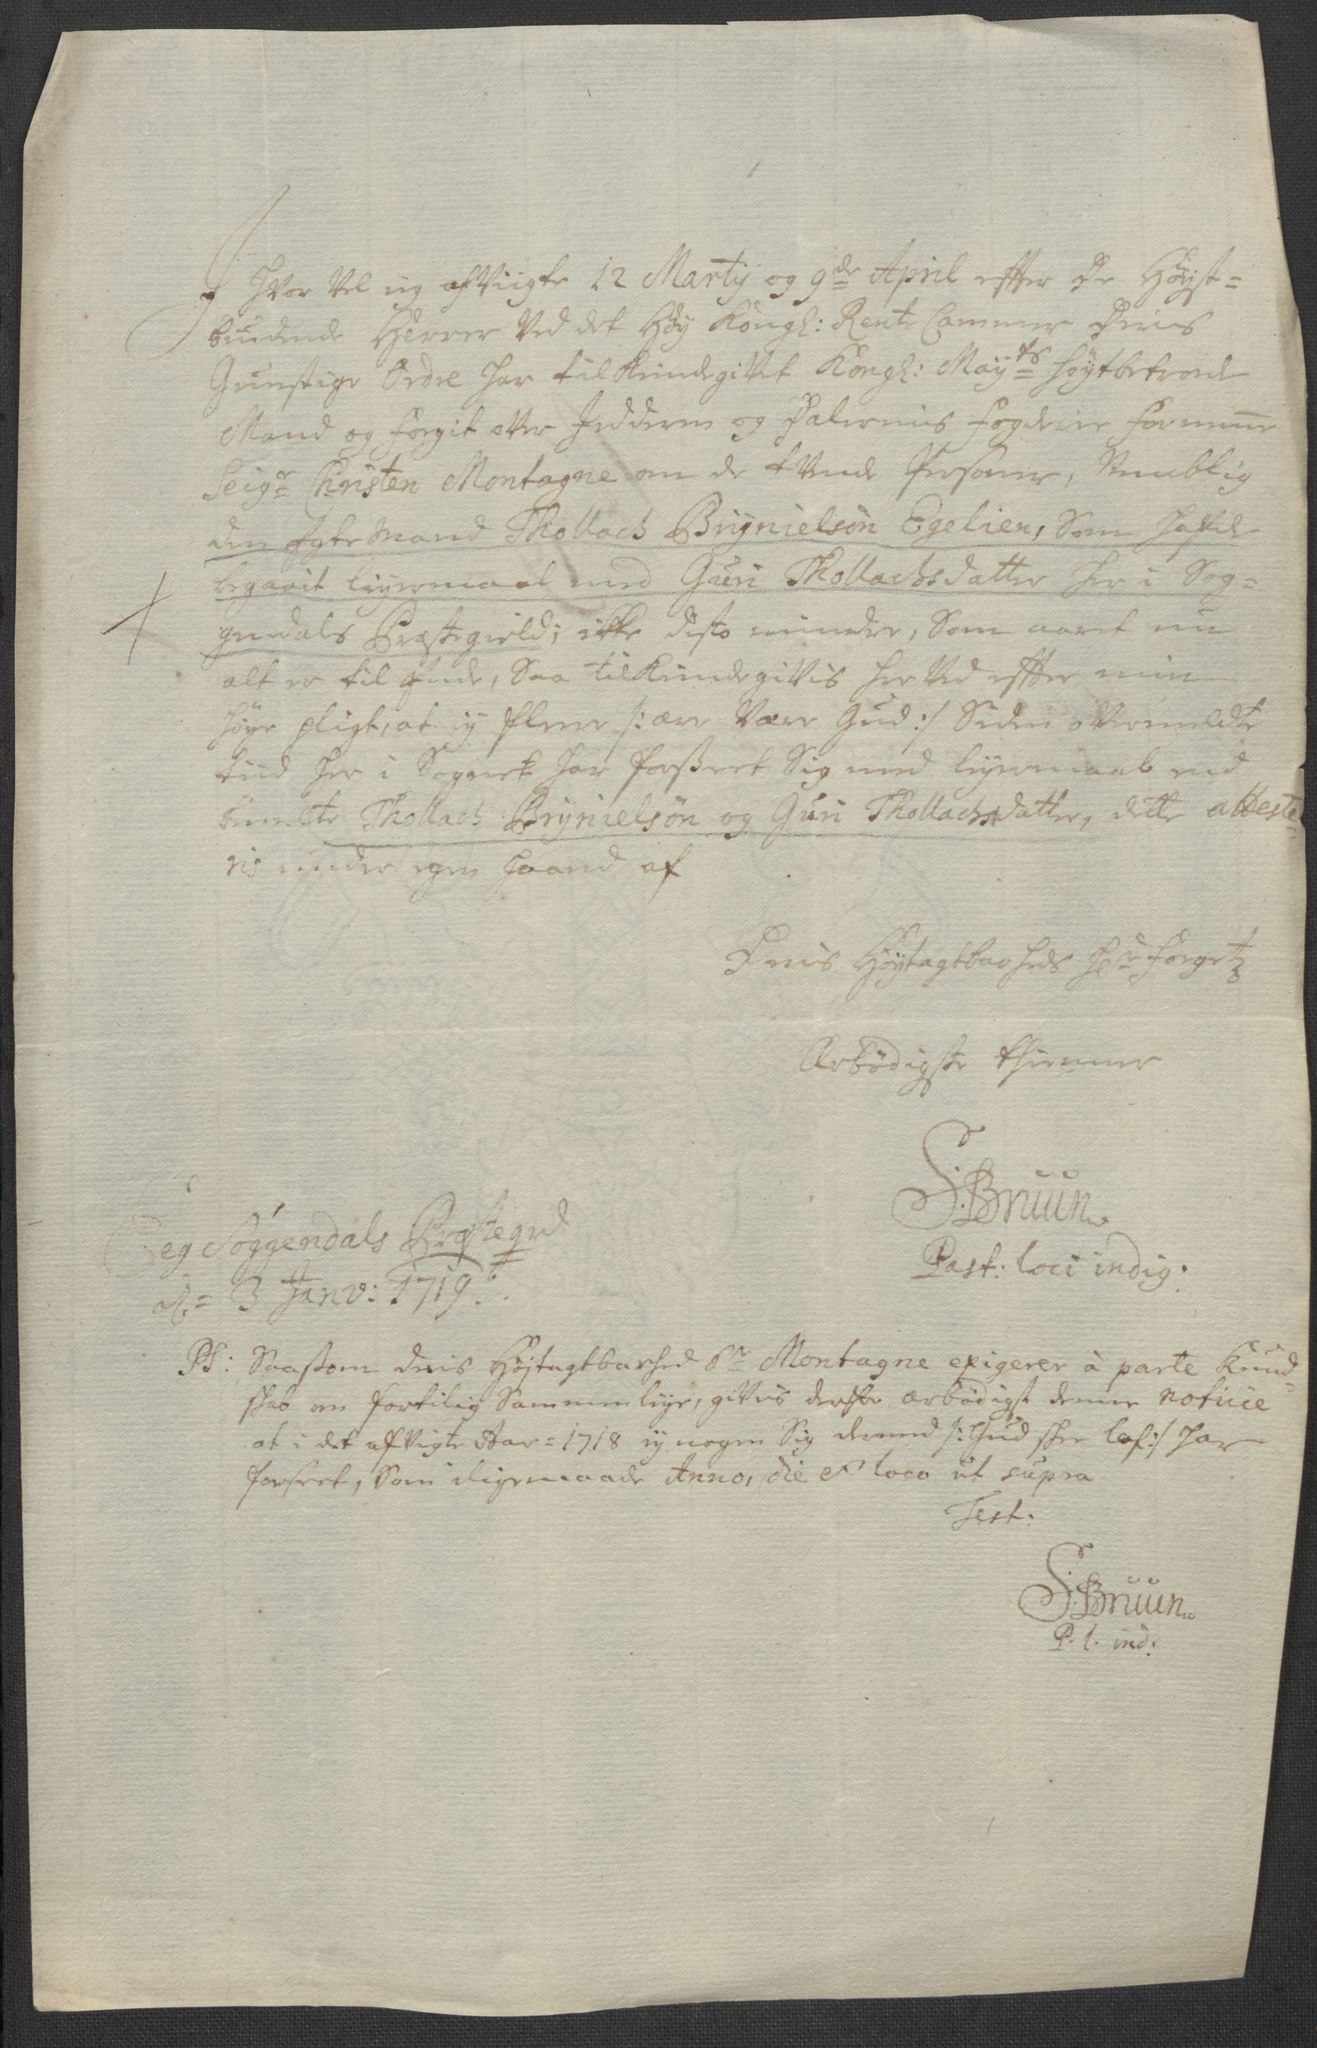 Hvor Vel ieg afVigte 12 Martij og 9de April effter De Høyst=
budende Herrer Ved det Høy Kongl: Rente Cammer Deris
Gunstige Ordre har tilKiendegiVet Kongl: Mayts Høytbetroede
Mand og Foegit oVer Jedderen og Dalernis Fogderie Fornemme
Seigr Christen Montagne om de tVende Personer, Nemblig
den Egte Mand Thollach Brÿnielsøn Egelien, Som hafde
begaait leyermaal med Guri Thollachsdatter her i Sog=
gendals Præstegield; ikke disto mindre, Som aaret nu
alt er til Ende, Saa tilKiendegiVis her Ved effter min
høye pligt, at ey fleere /: ære Være Gud :/ Siden oVermeldte
tiid her i Sognet har forseet Sig med leyermaal end
bemelte Thollach Brÿnielsøn og Guri Thollachsdatter, dette atteste=
ris under egen haand af
Deris Høytagtbarheds Hr Fogetz
Ærbødigste thienner
S: Bruun
Past: loci indig:
Aeg Soggendals Præstegrd
d. = 3 Janv: 1719.
PS: Saasom deris Høytagtbarhed Sr Montagne exigerer à parte Kund=
skab om fortilig Sammenleye, giVis derfor ærbødigst denne notice
at i det afVigte Aar = 1718 ey nogen Sig dermed /: Gud skee lof :/ har
forseet, Som iligemaade Anno, die & loco ut supra
Test:
S: Bruun
P. l. ind: